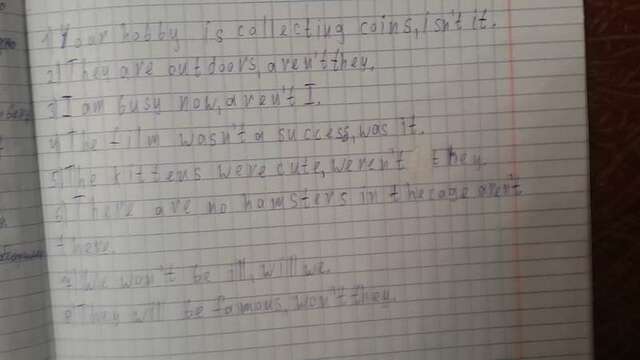 1) Your hobby is collecting coins, isn't it.
2) They are outdoors, aren't they.
3) I am busy now, aren't I.
4) The film wasn't a success, was it.
5) The kittens were cute, weren't they
6) There are no hamsters in the cage aren't
there.
7) We won't be ill, will we.
8) They will be famous, won't they.